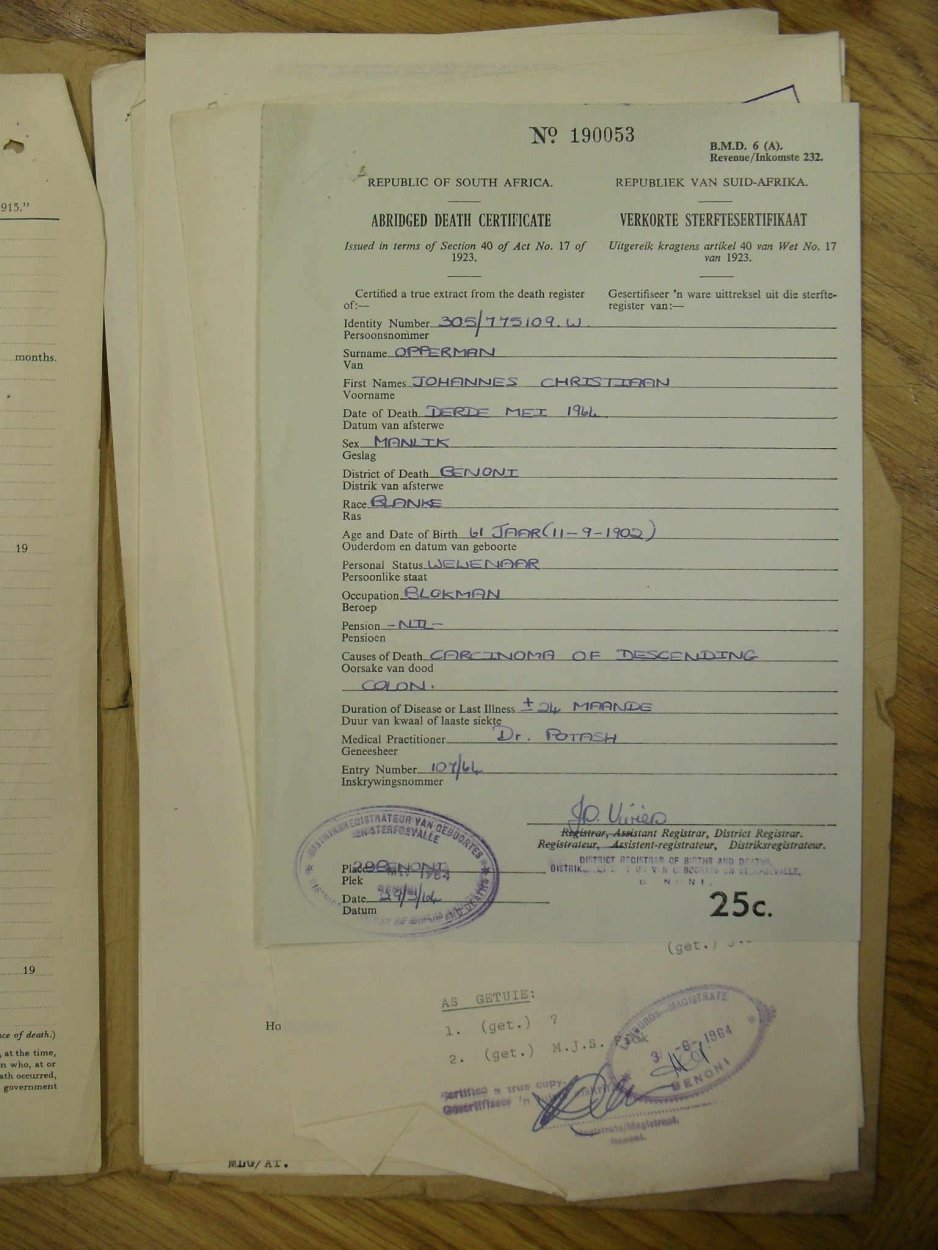 915."
months.
19
19
ce of death.)
, at the time,
n who, at or
ath occurred,
government
Nº 190053
B.M.D. 6 (A).
Revenue/Inkomste 232.
REPUBLIC OF SOUTH AFRICA.
REPUBLIEK VAN SUID-AFRIKA.
ABRIDGED DEATH CERTIFICATE
VERKORTE STERFTESERTIFIKAAT
Issued in terms of Section 40 of Act No. 17 of
1923.
Uitgereik kragtens artikel 40 van Wet No. 17
van 1923.
Certified a true extract from the death register
of:—
Gesertifiseer 'n ware uittreksel uit die sterfte-
register van:—
Identity Number 305/775109.W
Persoonsnommer
Surname OPPERMAN
Van
First Names JOHANNES CHRISTIAAN
Voorname
Date of Death DERDE MEI 1964
Datum van afsterwe
Sex MANLIK
Geslag
District of Death BENONI
Distrik van afsterwe
Race BLANKE
Ras
Age and Date of Birth 61 JAAR (11-9-1902)
Ouderdom en datum van geboorte
Personal Status WEWENAAR
Persoonlike staat
Occupation BLOKMAN
Beroep
Pension -NIL-
Pensioen
Causes of Death CARCINOMA OF DESCENDING
Oorsake van dood
COLON.
Duration of Disease or Last Illness ± 24 MAANDE
Duur van kwaal of laaste siekte
Medical Practitioner Dr. POTASH
Geneesheer
Entry Number 107/64
Inskrywingsnommer
Registrar, Assistant Registrar, District Registrar.
Registrateur, Assistent-registrateur, Distriksregistrateur.
DISTRICT REGISTRAR OF BIRTHS AND DEATHS,
BENONI.
DISTRIKSREGISTRATEUR VAN GEBOORTES
EN STERFGEVALLE
Place BENONI
Plek
Date 29/5/64
Datum
25c.
(get.)
AS GETUIE:
1. (get.) ?
2. (get.) M.J.S.
Ho
LANDDROS—MAGISTRATE
9 -6-1964
BENONI
Certified a true copy.
Gesertifiseer 'n
Magistrate/Magistraat,
Benoni.
MLG/AT.